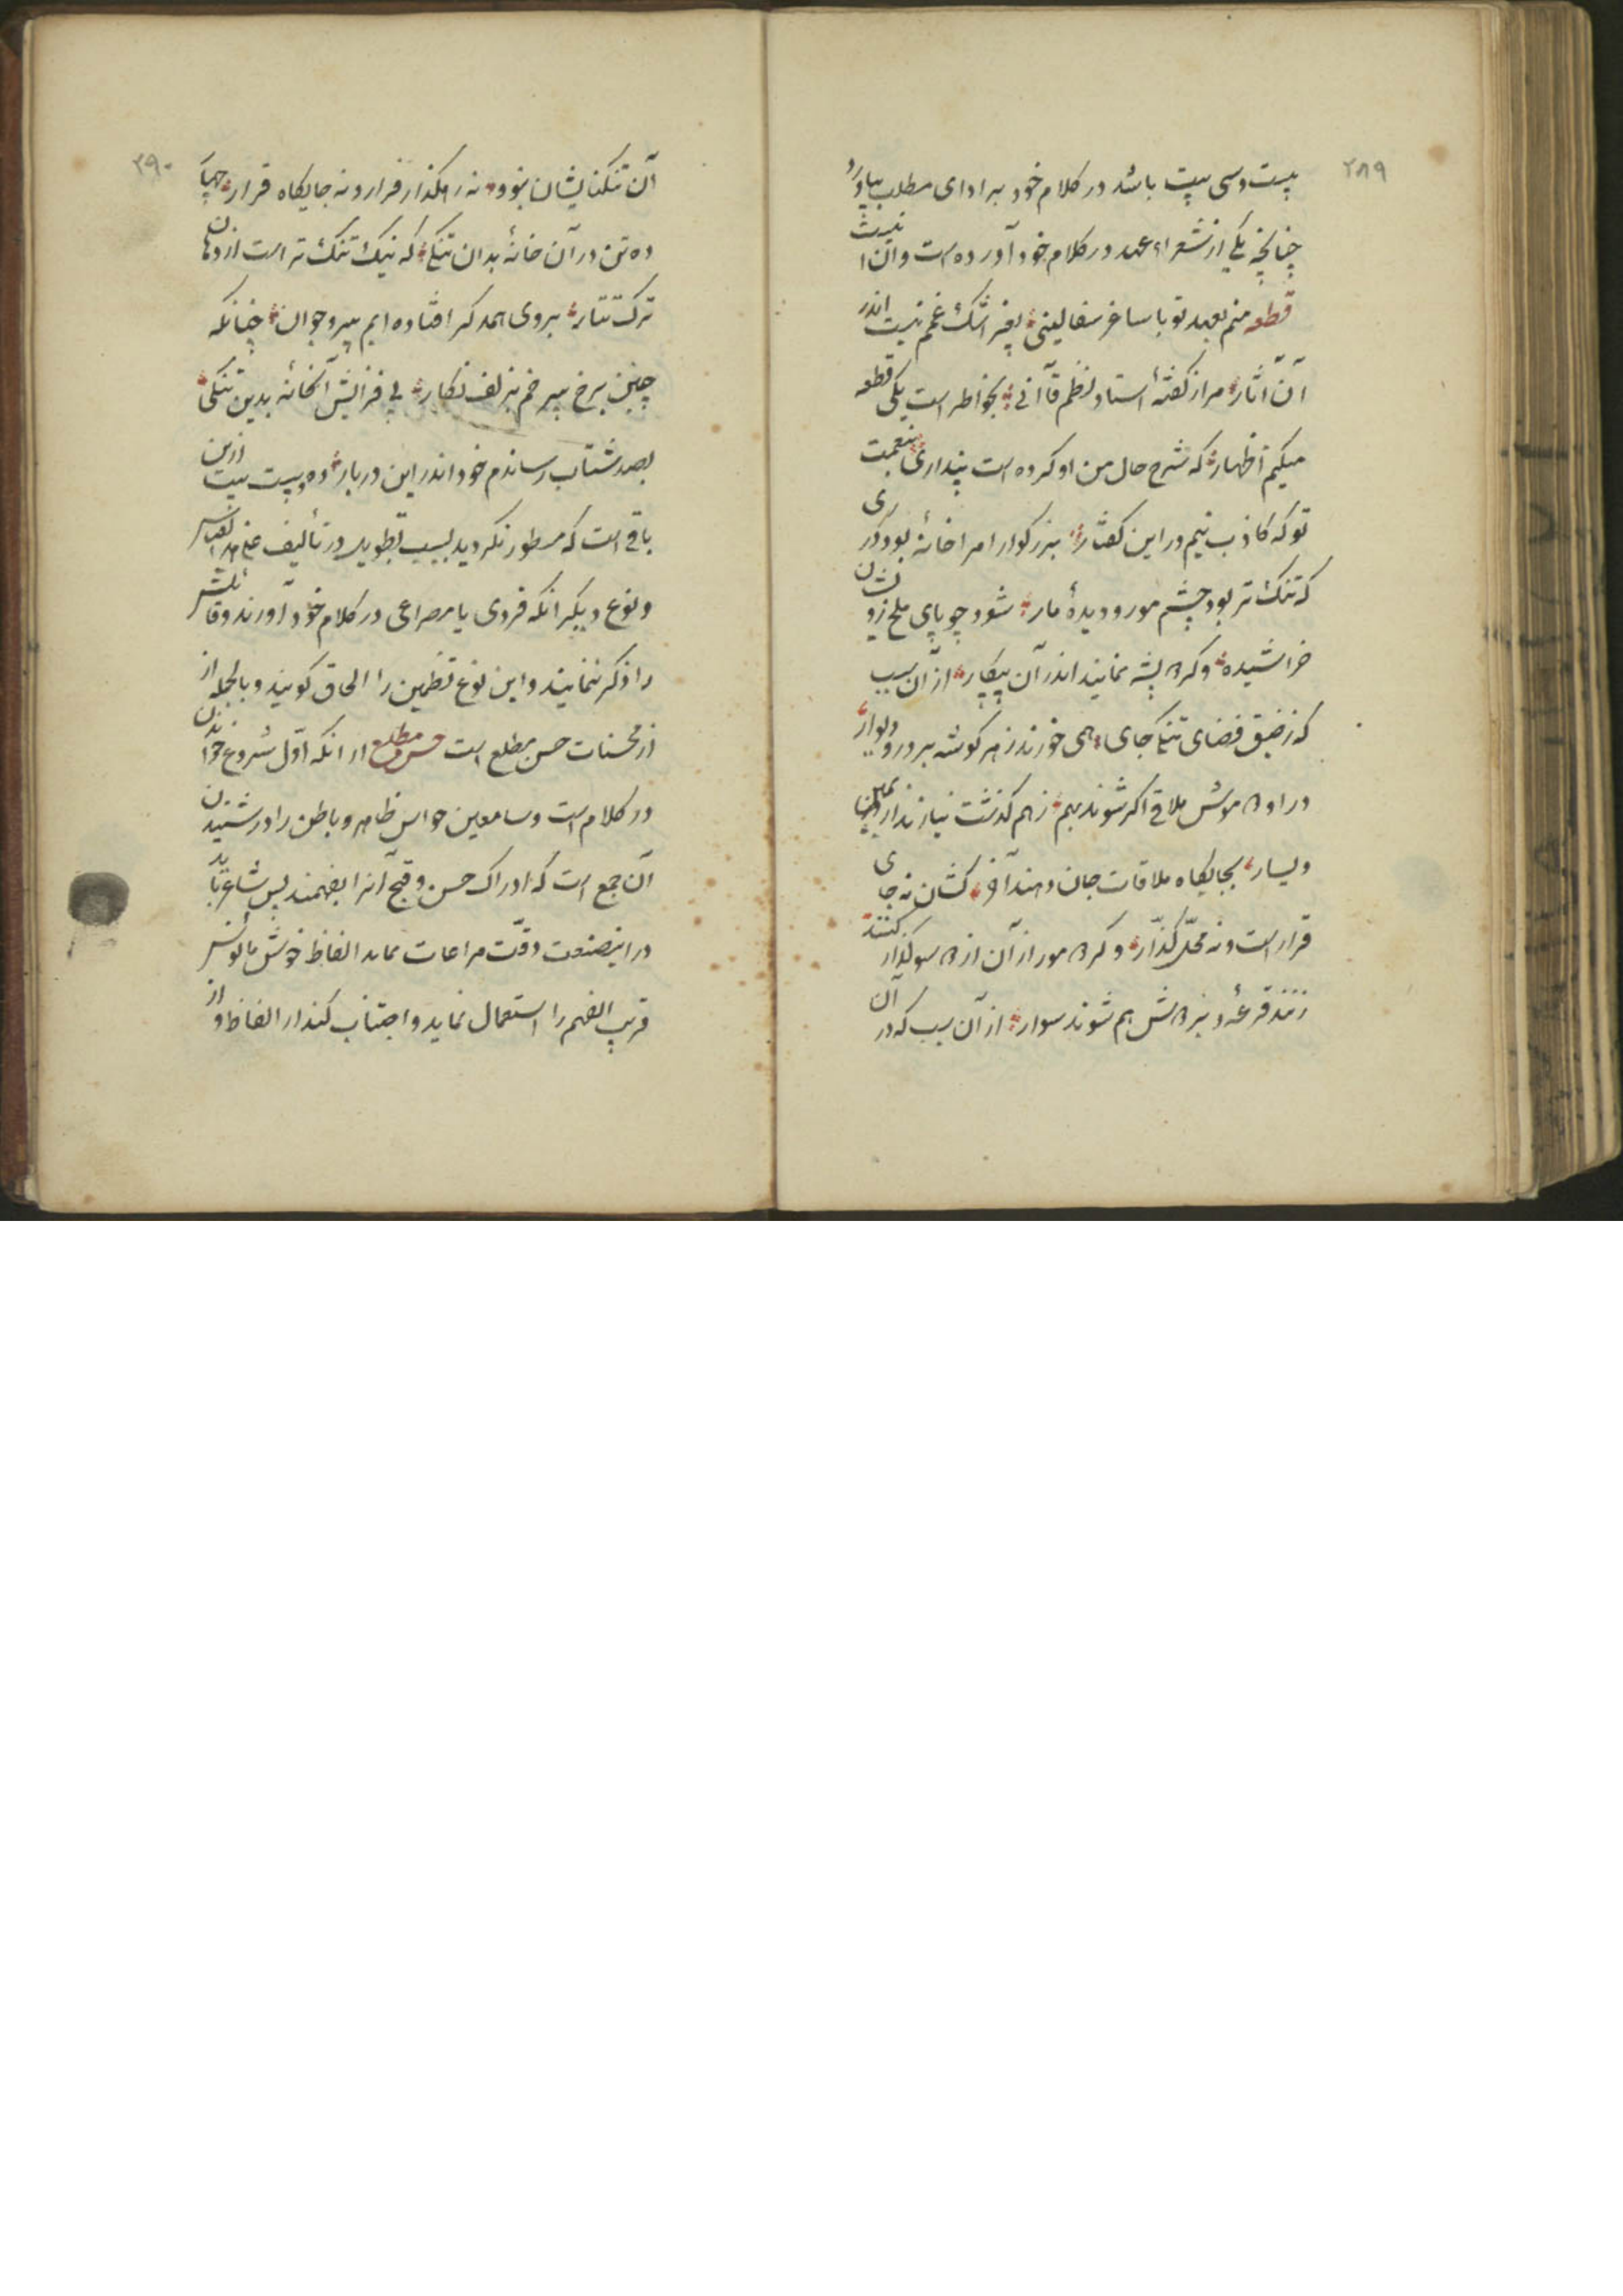 ۲۸۹
بیست و سی بیت باشد در کلام خود برادای مطلب بیاورد
چنانچه یکی از شعراء عهد در کلام خود آورده است و آن اینست
قطعه منم بعهد تو با ساغر سفالینی بغیر اشک غمم نیست اندر
آن آثار مرا ز کفته استاد نظم قاآنی بخواطر است یکی قطعه
میکنم اظهار که شرح حال من او کرده است پنداری بنعمت
تو که کاذب نیم در این کفتار بزرکوارا مرا خانه بود در ری
که تنک تر بود چشم مور و دیده مار شود چو پای ملخ زو نشان
خراشیده و کر پشه نمایند اندر آن پیکار از آن سبب
که ز ضیق فضای تنکی جای همی خورند ز هر کوشه بر در و دیوار
در او موش ملاقی اکر شوند بهم ز هم کذشت نیارند از یمین
و یسار بجایکاه ملاقات جان دهند آخر کشان نه جای
قرار است و نه محل کذار و کر مور از آن از سو کذار کنند
زنند قرعه و بر هم شوند سوار از آن سبب که در آن
۲۹۰
آن تنکنایشان نبود نه رهکذار فرار و نه جایکاه قرار
ده تن در آن خانه بدان تنکی که نیک تنک تر است از دهان
ترک تتار بروی همدکر افتاده ایم پیر و جوان چنانکه
چین برخ پیر خم بزلف نکار پی فزایش آنخانه بدین تنکی
بصد شتاب رساندم خود اندر این دربار ده بیست بیت ازین
باقی است که مسطور نکردید بسبب تطویل در تألیف
و نوع دیکر انکه فردی یا مصراعی در کلام خود آورند و قائلش
را ذکر ننمایند و این نوع تضمین را الحاق کویند و بالجمله از
از محسنات حسن مطلع است حسن مطلع از انکه اول شروع خواندن
در کلام است و سامعین حواس ظاهر و باطن را در شنیدن
آن جمع است که ادراک حسن و قبح آنرا بفهمند پس شاعر باید
در اینصنعت دقت مراعات نماید الفاظ خوش مانوس
قریب الفهم را استعمال نماید و اجتناب کند از الفاظ و از